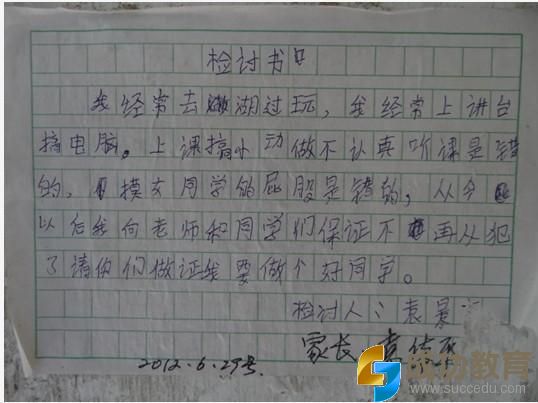 检讨书
我经常去湖过玩，我经常上讲台
搞电脑。上课搞小动做不认真听课是错
的，摸女同学的屁股是错的，从今
以后我向老师和同学们保证不再从犯
了请你们做证我要做个好同学。
检讨人：袁景
家长 袁
2012.6.29号.
成功教育
www.succedu.com